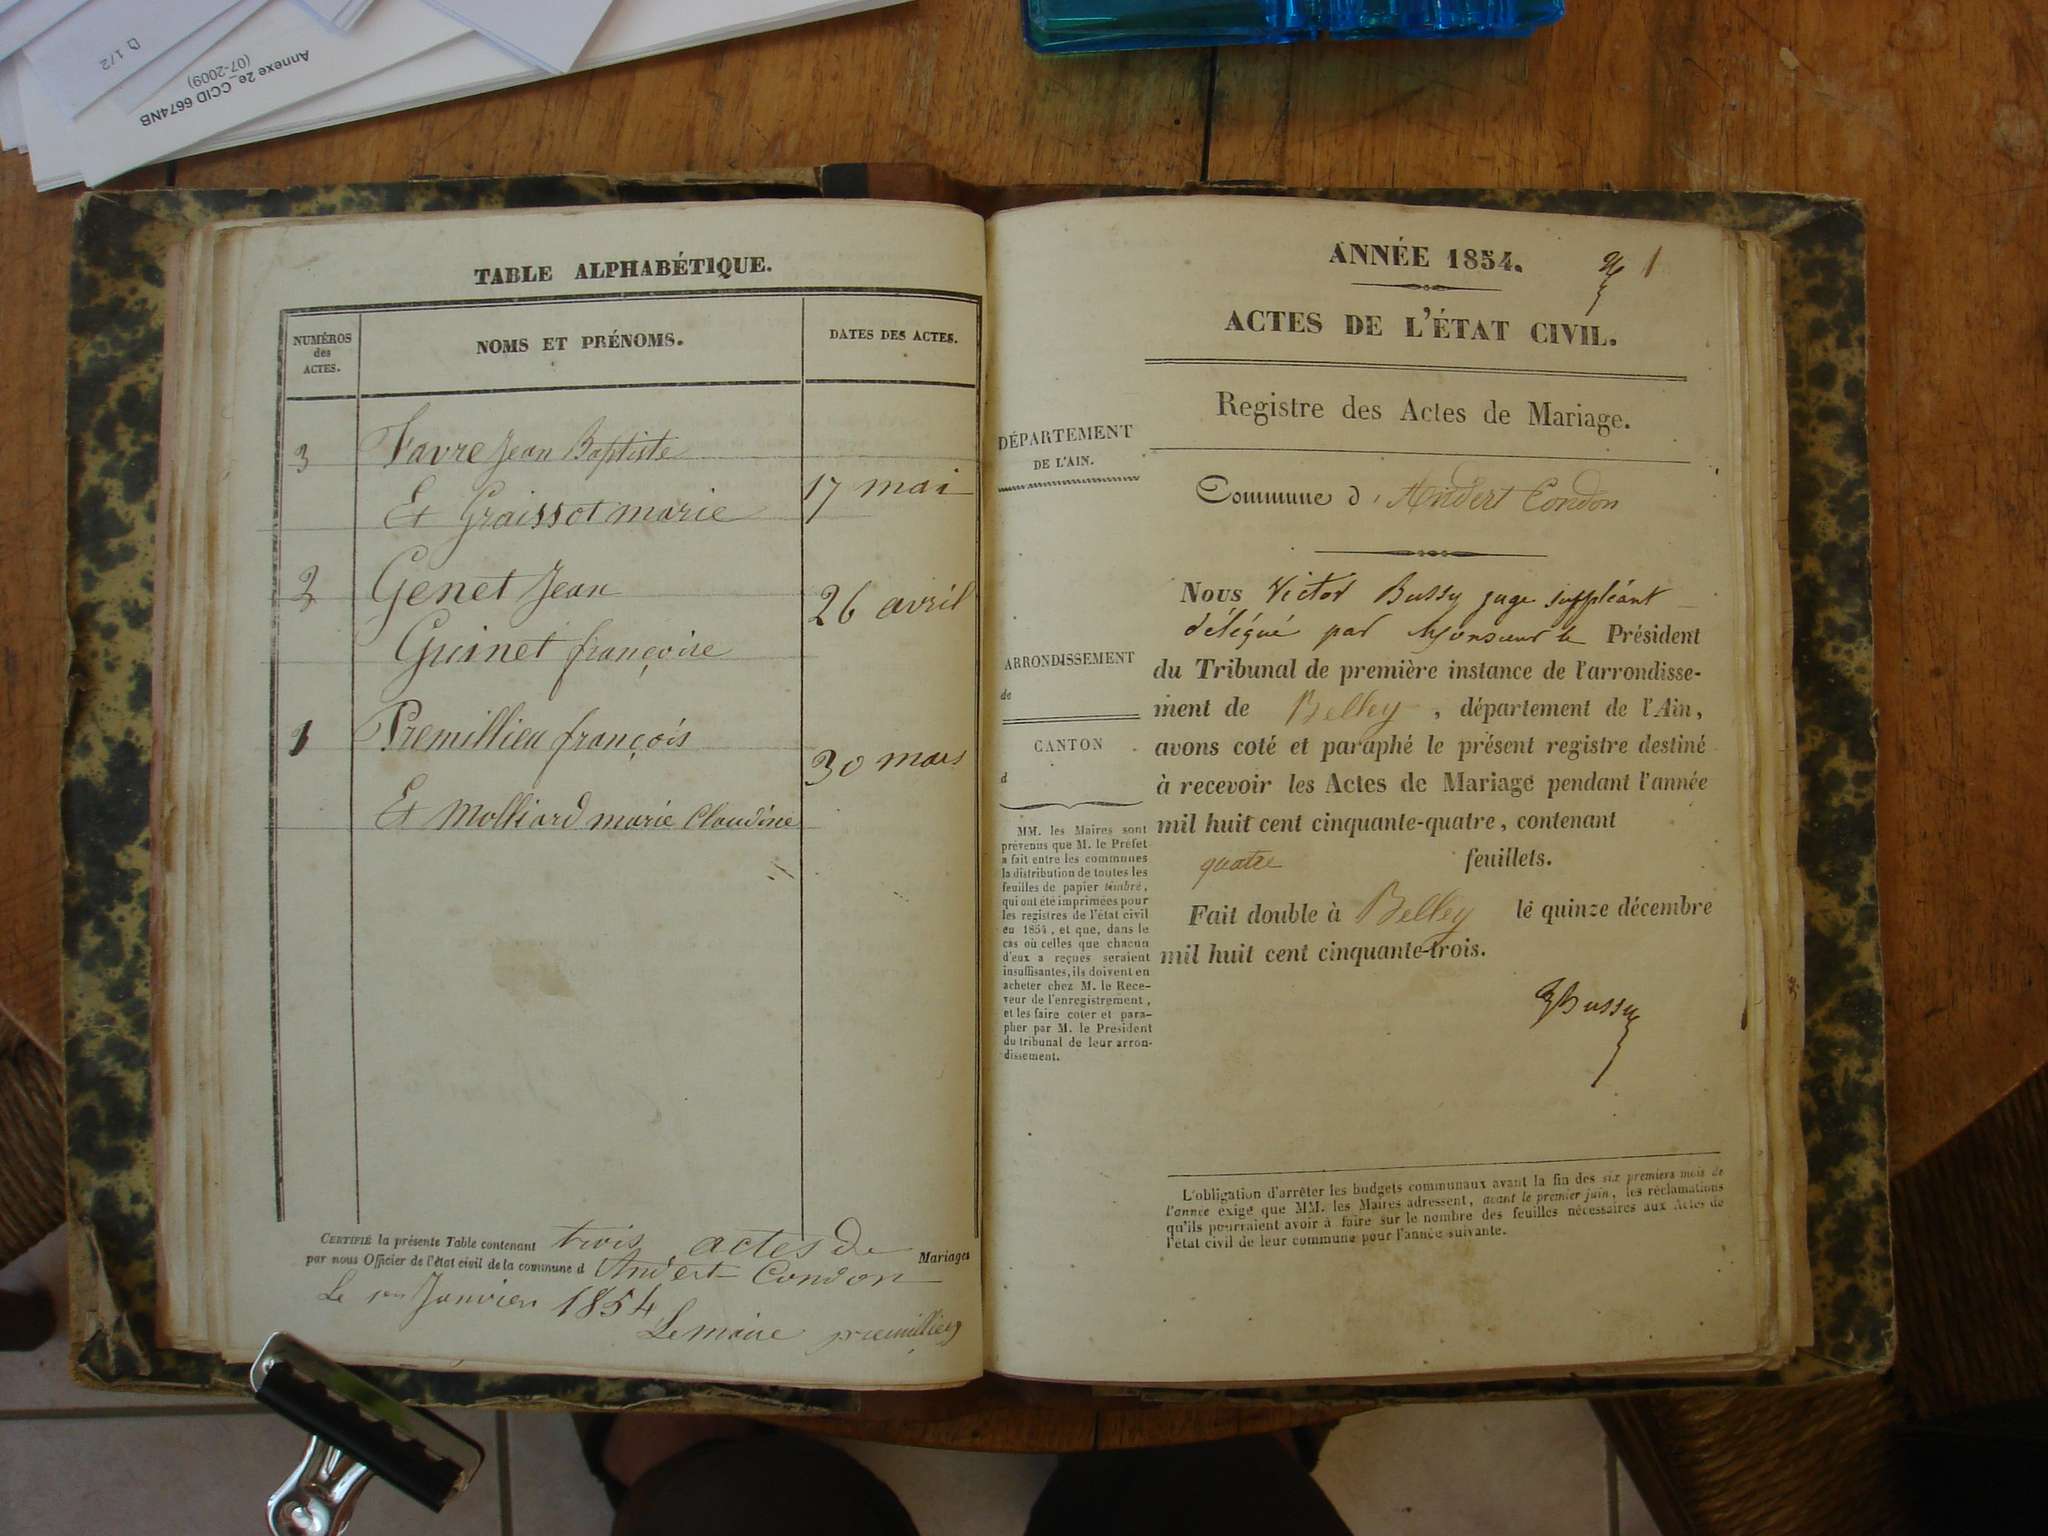 1/2
Annexe 2e_CCID 6674NB
(07-2009)
TABLE ALPHABÉTIQUE.
NUMÉROS
des
ACTES.
NOMS ET PRÉNOMS.
DATES DES ACTES.
3 Favre Jean Baptiste
Et Graissot marie 17 mai
2 Genet Jean
26 avril
Guinet françoise
1 Premillieu françois
30 mars
Et Molliard marie Claudine
CERTIFIÉ la présente Table contenant trois actes de Mariages
par nous Officier de l'état civil de la commune d Andert Condon
Le 1er Janvier 1854
Le maire premillieu
ANNÉE 1854.
1
ACTES DE L'ÉTAT CIVIL.
Registre des Actes de Mariage.
DÉPARTEMENT
DE L'AIN.
Commune d'Andert Condon
ARRONDISSEMENT
de
CANTON
d
MM. les Maires sont
prévenus que M. le Préfet
a fait entre les communes
la distribution de toutes les
feuilles de papier timbré,
qui ont été imprimées pour
les registres de l'état civil
en 1854, et que, dans le
cas où celles que chacun
d'eux a reçues seraient
insuffisantes, ils doivent en
acheter chez M. le Rece-
veur de l'enregistrement,
et les faire coter et para-
pher par M. le Président
du tribunal de leur arron-
dissement.
NOUS Victor Bussy juge suppléant
délégué par Monsieur le Président
du Tribunal de première instance de l'arrondisse-
ment de Belley, département de l'Ain,
avons coté et paraphé le présent registre destiné
à recevoir les Actes de Mariage pendant l'année
mil huit cent cinquante-quatre, contenant
quatre feuillets.
Fait double à Belley le quinze décembre
mil huit cent cinquante-trois.
Bussy
L'obligation d'arrêter les budgets communaux avant la fin des six premiers mois de
l'année exige que MM. les Maires adressent, avant le premier juin, les réclamations
qu'ils pourraient avoir à faire sur le nombre des feuilles nécessaires aux Actes de
l'état civil de leur commune pour l'année suivante.